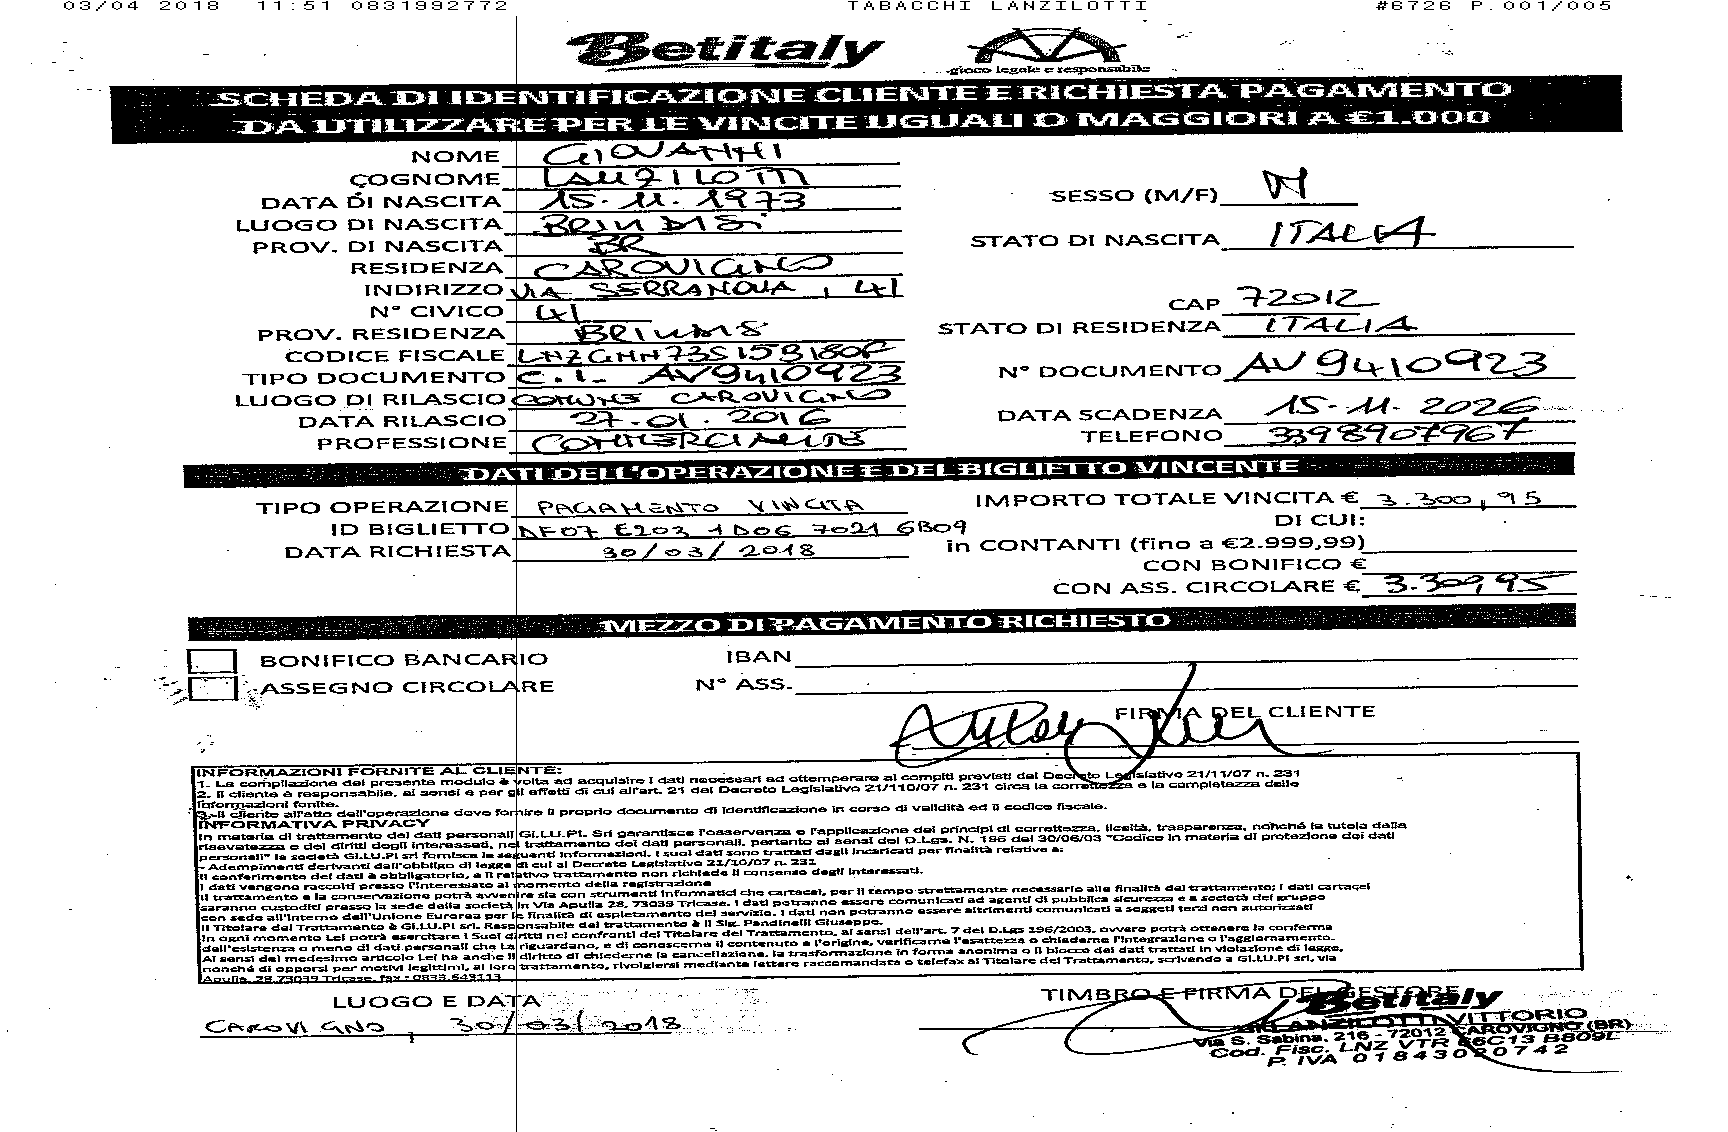 03/04 2018 11:51 0831992772 TABACCHI LANZILOTTI #6726 P.001/005
Betitaly
gioco legale e responsabile
SCHEDA DI IDENTIFICAZIONE CLIENTE E RICHIESTA PAGAMENTO
DA UTILIZZARE PER LE VINCITE UGUALI O MAGGIORI A €1.000
NOME GIOVANNI
COGNOME LANZILOTTI
SESSO (M/F) M
DATA DI NASCITA 15.11.1973
LUOGO DI NASCITA BRINDISI
STATO DI NASCITA ITALIA
PROV. DI NASCITA BR
RESIDENZA CAROVIGNO
INDIRIZZO VIA SERRANOVA, 41
CAP 72012
N° CIVICO 41
STATO DI RESIDENZA ITALIA
PROV. RESIDENZA BRINDISI
CODICE FISCALE LNZGNN73S15B180F
TIPO DOCUMENTO C.I. AV9410923
N° DOCUMENTO AV9410923
LUOGO DI RILASCIO COMUNE CAROVIGNO
DATA RILASCIO 27.01.2016
DATA SCADENZA 15-11-2026
PROFESSIONE COMMERCIANTE
TELEFONO 3398907967
DATI DELL'OPERAZIONE E DEL BIGLIETTO VINCENTE
TIPO OPERAZIONE PAGAMENTO VINCITA
IMPORTO TOTALE VINCITA € 3.300,95
DI CUI:
ID BIGLIETTO DF07 E203 1D06 7021 6B09
DATA RICHIESTA 30/03/2018
in CONTANTI (fino a €2.999,99)
CON BONIFICO €
CON ASS. CIRCOLARE € 3.300,95
MEZZO DI PAGAMENTO RICHIESTO
BONIFICO BANCARIO IBAN
ASSEGNO CIRCOLARE N° ASS.
FIRMA DEL CLIENTE
INFORMAZIONI FORNITE AL CLIENTE:
1. La compilazione del presente modulo è volta ad acquisire i dati necessari ad ottemperare ai compiti previsti dal Decreto Legislativo 21/11/07 n. 231
2. Il cliente è responsabile, ai sensi e per gli effetti di cui all'art. 21 del Decreto Legislativo 21/110/07 n. 231 circa la correttezza e la completezza delle
informazioni fonite.
3. Il cliente all'atto dell'operazione dove fornire il proprio documento di identificazione in corso di validità ed il codice fiscale.
INFORMATIVA PRIVACY
In materia di trattamento dei dati personali GI.LU.PI. Srl garantisce l'osservanza e l'applicazione dei principi di correttezza, liceità, trasparenza, nonché la tutela della
risevatezza e dei diritti degli interessati, nel trattamento dei dati personali, pertanto ai sensi del D.Lgs. N. 196 del 30/06/03 "Codice in materia di protezione dei dati
personali" la società GI.LU.PI srl fornisce le seguenti informazioni. I suoi dati sono trattati dagli incaricati per finalità relative a:
- Adempimenti derivanti dall'obbligo di legge di cui al Decreto Legislativo 21/10/07 n. 231
Il conferimento dei dati è obbligatorio, e il relativo trattamento non richiede il consenso degli interessati.
I dati vengono raccolti presso l'interessato al momento della registrazione
Il trattamento e la conservazione potrà avvenire sia con strumenti informatici che cartacei, per il tempo strettamente necessario alle finalità del trattamento; i dati cartacei
saranno custoditi presso la sede della società in Via Apulia 28, 73039 Tricase. I dati potranno essere comunicati ad agenti di pubblica sicurezza e a società del gruppo
con sede all'interno dell'Unione Eurorea per le finalità di espletamento del servizio. I dati non potranno essere altrimenti comunicati a soggeti terzi non autorizzati
Il Titolare del Trattamento è GI.LU.PI srl. Responsabile del trattamento è il Sig. Pandinelli Giuseppe.
In ogni momento Lei potrà esercitare i Suoi diritti nei confronti del Titolare del Trattamento, ai sensi dell'art. 7 del D.Lgs 196/2003, ovvero potrà ottenere la conferma
dell'esistenza o meno di dati personali che La riguardano, e di conoscerne il contenuto e l'origine, verificarne l'esattezza o chiederne l'integrazione o l'aggiornamento.
Ai sensi del medesimo articolo Lei ha anche il diritto di chiederne la cancellazione, la trasformazione in forma anonima o il blocco dei dati trattati in violazione di legge,
nonché di opporsi per motivi legittimi, al loro trattamento, rivolgiersi mediante lettere raccomandata o telefax al Titolare del Trattamento, scrivendo a GI.LU.PI srl, via
Apulia, 28 73039 Tricase, fax : 0833.543113
LUOGO E DATA
TIMBRO E FIRMA DEL GESTORE
CAROVIGNO, 30/03/2018
Betitaly
LANZILOTTI VITTORIO
Via S. Sabina, 216 - 72012 CAROVIGNO (BR)
Cod. Fisc. LNZ VTR 66C13 B809L
P. IVA 01843020742